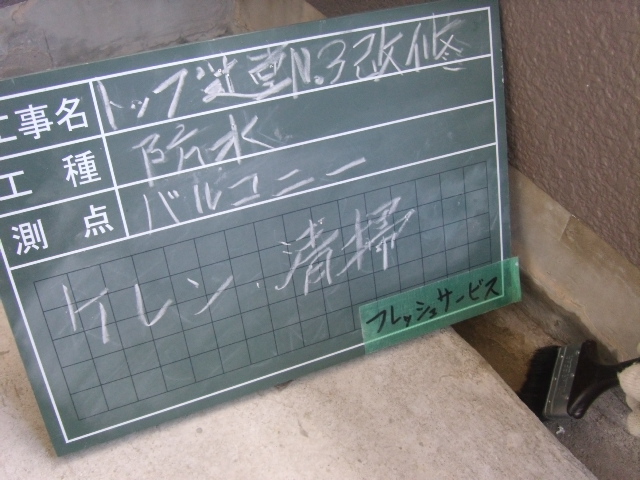 工事名 トップ No.3改修
工種 防水
測点 バルコニー
ケレン・清掃
フレッシュサービス